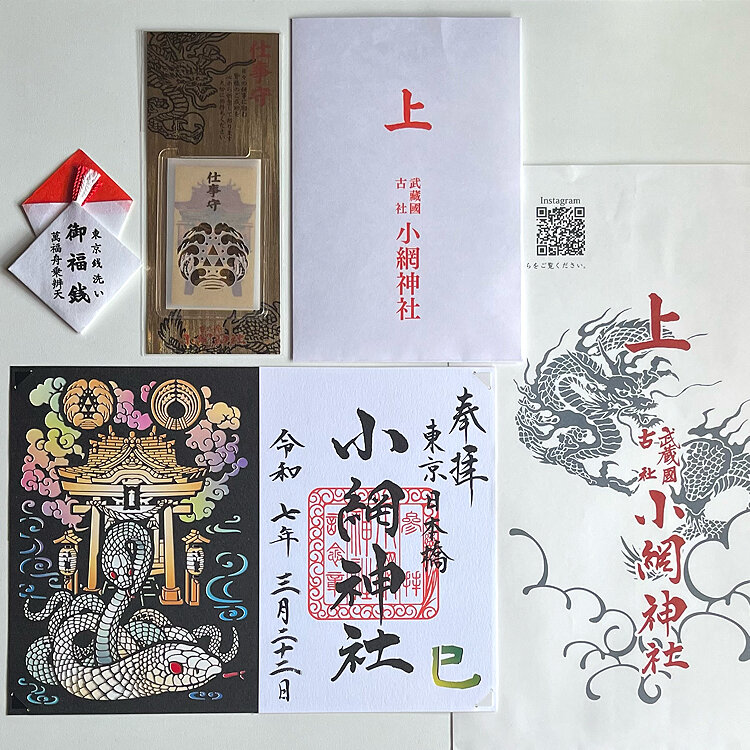 東京銭洗い
御福銭
萬福舟乗辨天
仕事守
仕事守
上
武藏國
古社
小網神社
Instagram
らをご覧ください。
上
武蔵國
古社
小網神社
奉拝
東京日本橋
小網神社
令和七年三月二十二日
巳